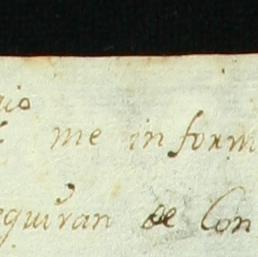 me in form
eguiran de Con